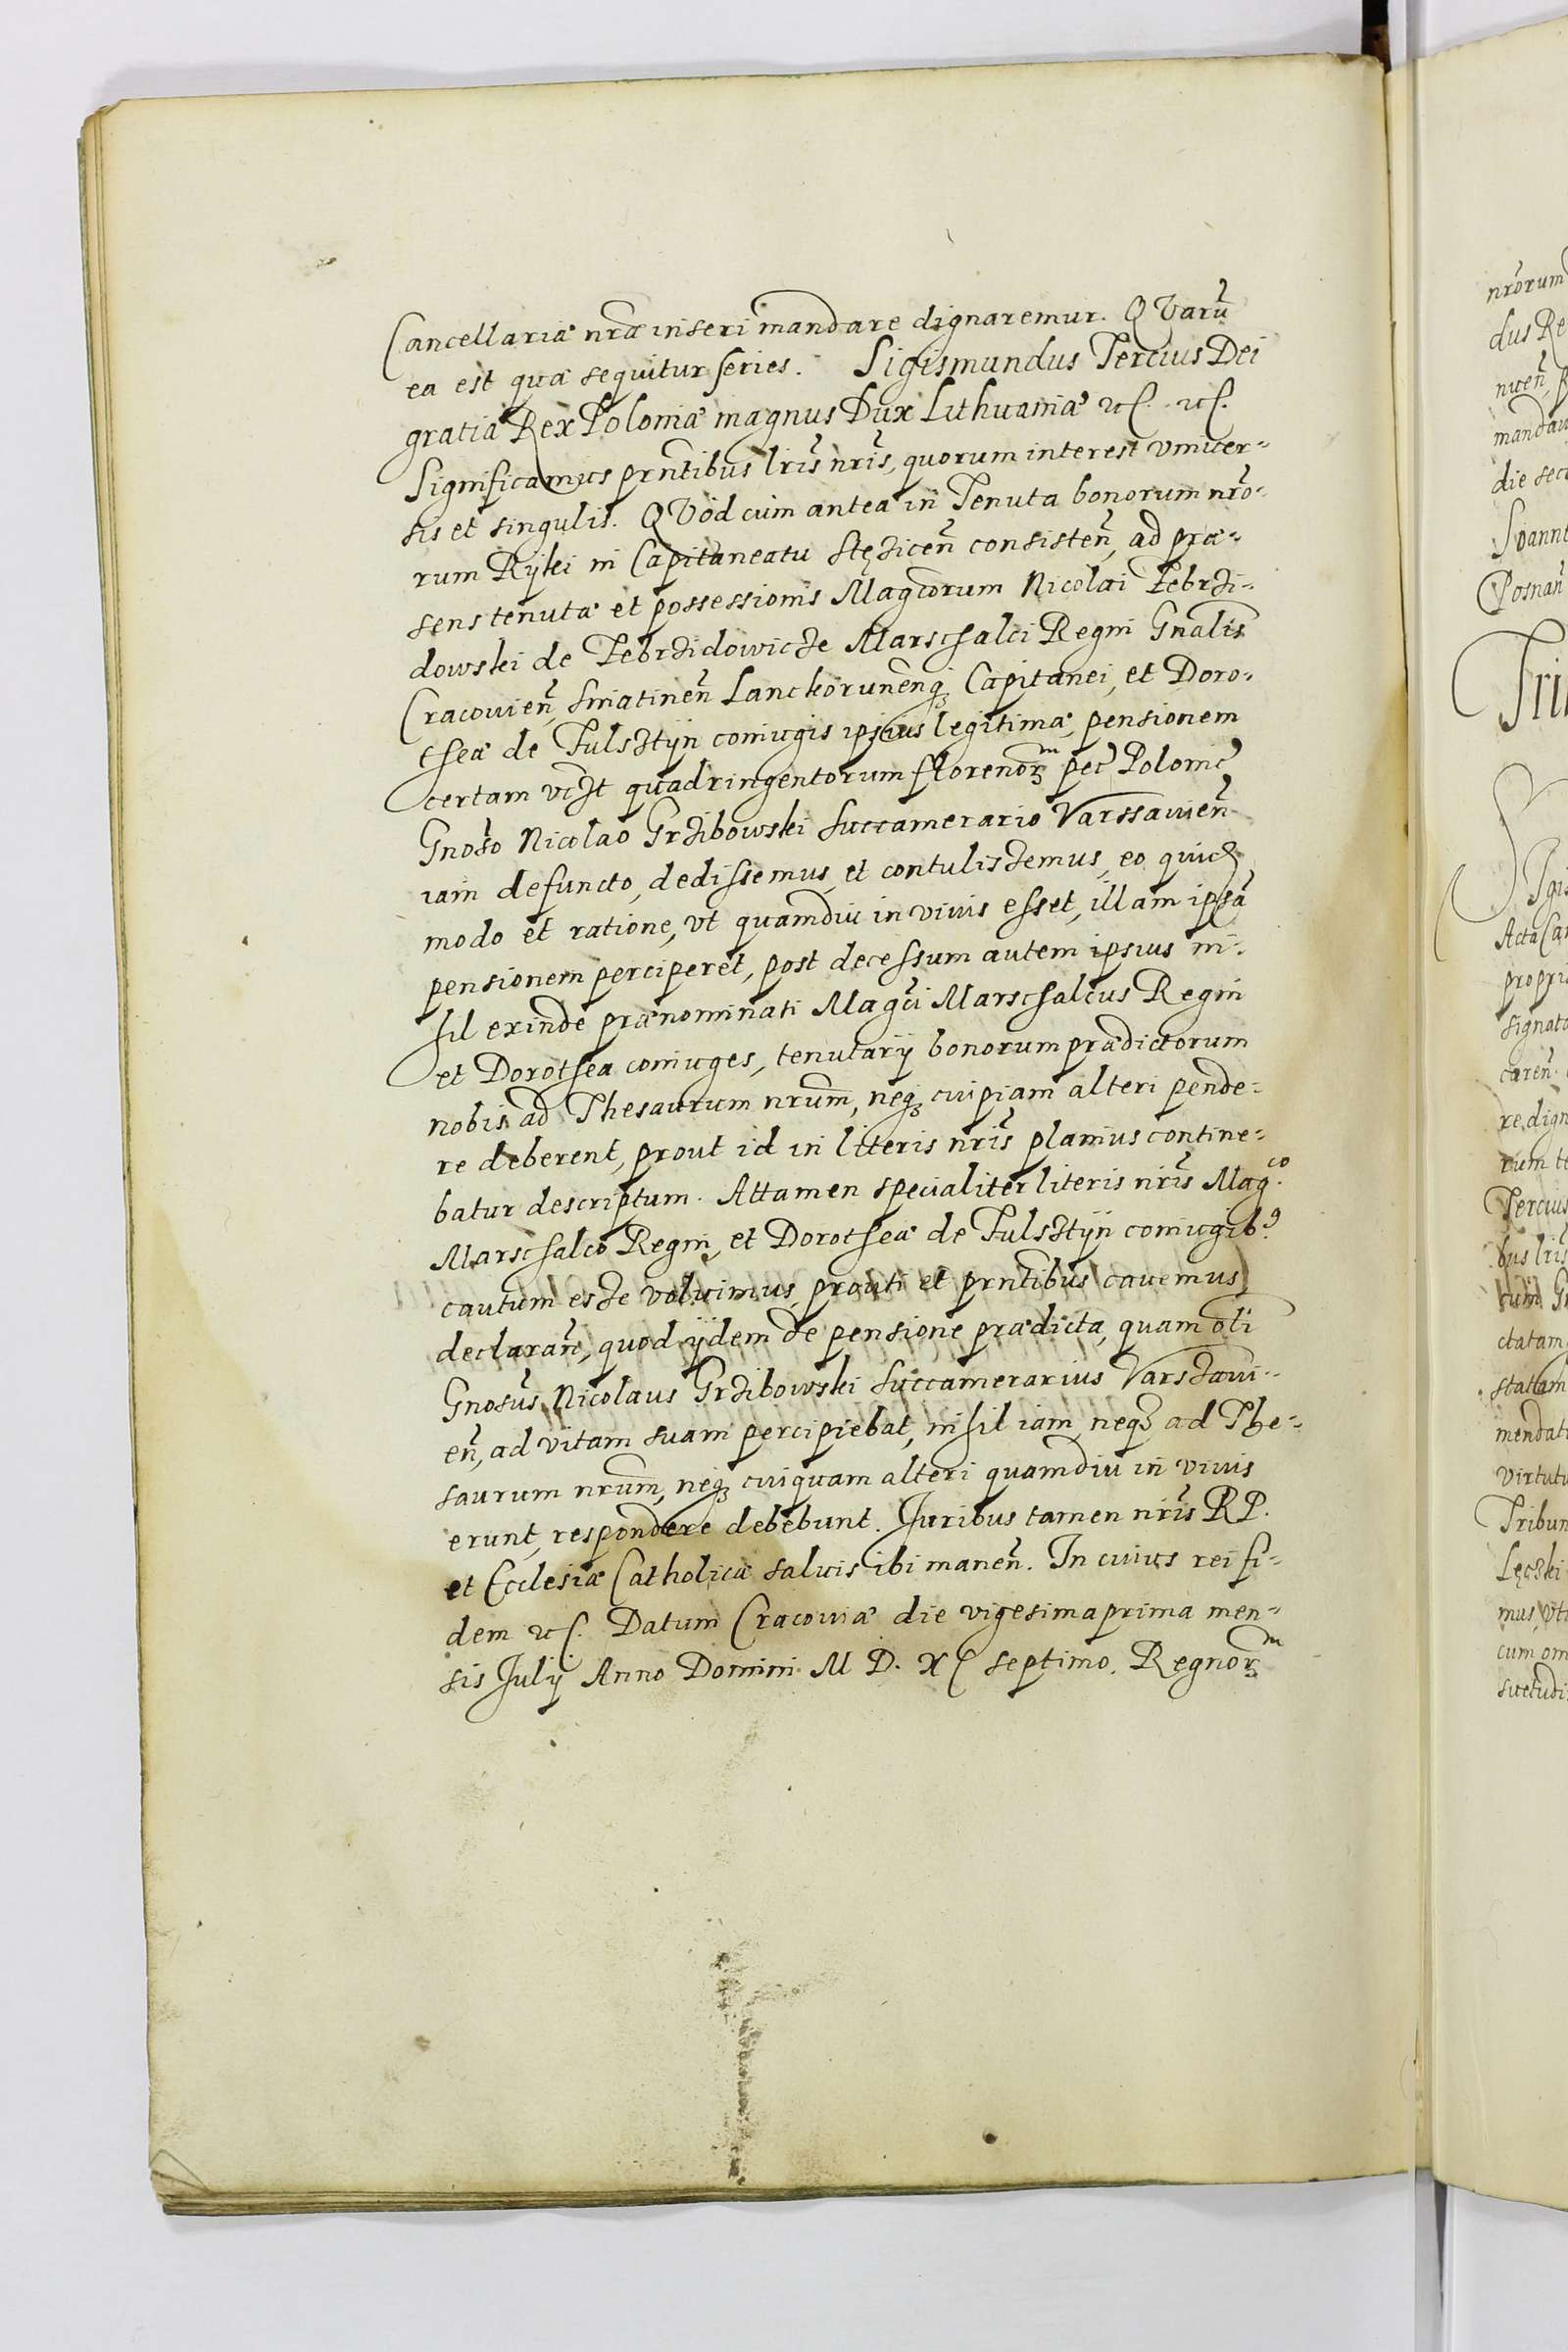 Cancellariæ nræ inseri mandare dignaremur. QVarũ
ea est quæ sequitur series. Sigismundus Tercius Dei
gratia Rex Poloniæ magnus Dux Lithuaniæ etc. etc.
Significamus prntibus lris nris, quorum interest vniuer-
sis et singulis. QVod cum antea in Tenuta bonorum nro-
rum Ryki in Capitaneatu Stęzicen̄ consisten̄, ad præ-
sens tenutæ et possessionis Magcorum Nicolai Zebrzi-
dowski de Zebrzidowicze Marschalci Regni Gnalis
Cracouien̄, Sniatinen̄ Lanckorunenq₃ Capitanei, et Doro-
theæ de Fulsztyn coniugis ipsius legitimæ, pensionem
certam vczt quadringentorum florenorm pec Polonic
Gnoso Nicolao Grzibowski Succamerario Varssauien̄
iam defuncto, dedissemus, et contulissemus, eo quidem
modo et ratione, vt quamdiu in viuis esset, illam ipsã
pensionem perciperet, post decessum autem ipsius ni-
hil exinde prænominati Magci Marschalcus Regni
et Dorothea coniuges, tenutarij bonorum prædictorum
nobis ad Thesaurum nrum, neq₃ cuipiam alteri pende-
re deberent, prout id in literis nris planius contine-
batur descriptum. Attamen specialiter literis nris Mag.co
Marschalco Regni, et Dorotheæ de Fulsztyn coniugib9
cautum esse voluimus, prouti et prntibus cauemus
declaran̄, quod ijdem de pensione prædicta, quam oli
Gnosus Nicolaus Grzibowski Succamerarius Varssaui-
en̄, ad vitam suam percipiebat, nihil iam neq₃ ad The-
saurum nrum, neq₃ cuiquam alteri quamdiu in viuis
erunt, respondere debebunt. Juribus tamen nris RP.
et Ecclesiæ Catholicæ saluis ibi manen̄. In cuius rei fi-
dem etc. Datum Cracouiæ die vigesima prima men-
sis Julij Anno Domini M D. XC septimo. Regnorm
nrorum
dus Re
nien̄, p
mandau
die sec
Ioanne
Posnan̄
Tri
Sgis
Acta Ca
propri
signat
caren̄.
re dign
rum te
Tercius
bus lris
cum G
ctatam
statam
mendat
virtut
Tribun
Lęczki
mus, vt
cum om
suetudi